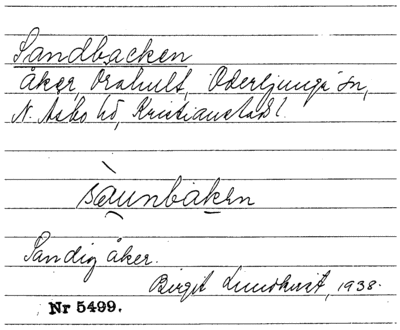 Sandbacken
åker, Orahult, Oderljunga sn,
N. Åsbo hd, Kristianstads l.
sàunbaken
Sandig åker.
Birgit Lundkvist, 1938.
Nr 5499.